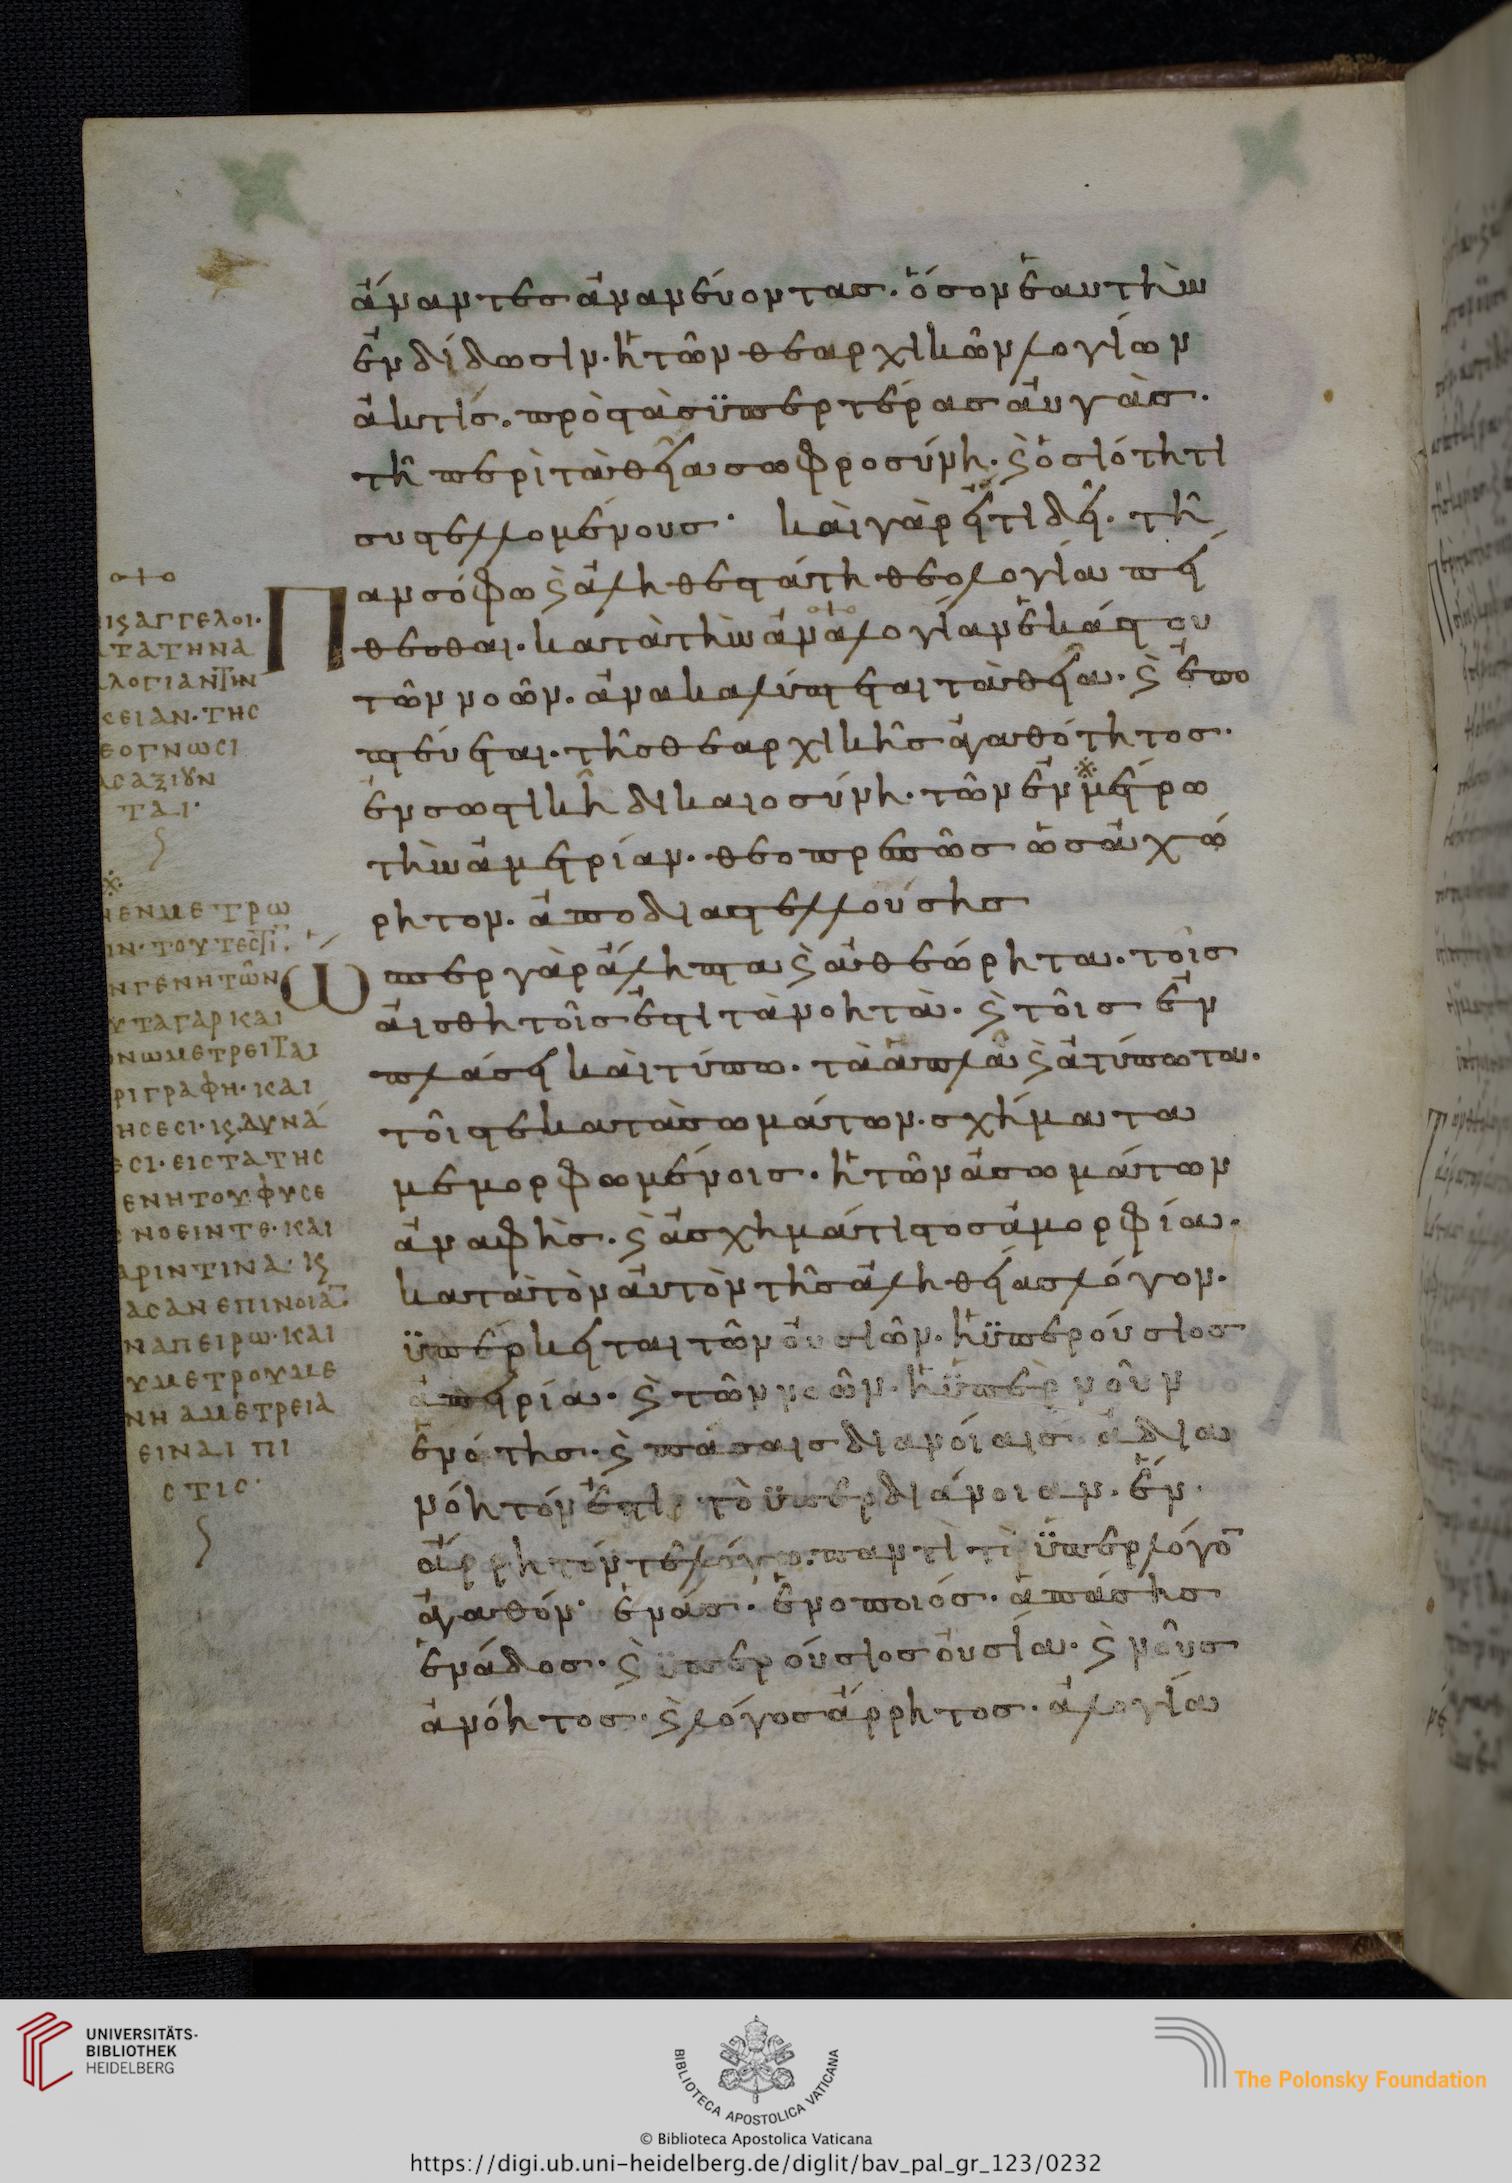 ἄναντες ἀνανεύοντας· ὅσον ἑαυτὴν
ἐνδίδωσιν· ἡ τῶν θεαρχικῶν λογίων
ἀκτίς· πρὸς τὰς ϋπερτέρας αὐγὰς·
τῆ περὶ τὰ θεῖα σωφροσύνη· ϗ ὁσιότητι
συστελλομένους· καὶ γὰρ εἴ τι δεῖ· τῆ
πανσόφω ϗ ἀληθεστάτη θεολογία πεί
θεσθαι· κατὰ τὴν ἀναλογίαν ἑκάστου
τῶν νοῶν· ἀνακαλύπτεται τὰ θεῖα· ϗ ἐπο
πτεύεται· τῆς θεαρχικῆς ἀγαθότητος·
ἐν σωστικῆ δικαιοσύνη· τῶν ἐν μέτρω
τὴν ἀμετρίαν· θεοπρεπῶς ὡς ἀχώ
ρητον· ἀποδιαστελλούσης
Ὥσπερ γὰρ ἄληπτα ϗ ἀθεώρητα· τοῖς
αἰσθητοῖς ἐστὶ τὰ νοητὰ· ϗ τοῖς ἐν
πλάσει καὶ τύπω· τὰ ἁπλᾶ ϗ ἀτύπωτα·
τοῖς τε κατὰ σωμάτων· σχήματα
μεμορφωμένοις· ἡ τῶν ἀσωμάτων
ἀναφὴς· ϗ ἀσχημάτιστος ἀμορφία·
κατὰ τὸν αὐτὸν τῆς ἀληθείας λόγον·
ϋπέρκειται τῶν οὐσιῶν· ἡ ϋπερούσιος
ἀπειρία· ϗ τῶν νοῶν· ἡ ϋπὲρ νοῦν
ἑνότης· ϗ πάσαις διανοίαις ἀδια
νόητόν ἐστι· τὸ ϋπερδιάνοιαν· ἕν·
ἄρρητόν τε λόγω παντὶ τὸ ϋπὲρ λόγο̅
ἀγαθόν· ἑνὰς· ἑνοποιός· ἁπάσης
ἑνάδος· ϗ ϋπερούσιος οὐσία· ϗ νοῦς
ἀνόητος· ϗ λόγος ἄρρητος· ἀλογία
ΙϚ ΑΓΓΕΛΟΙ·
ΤΑ ΤΗΝ Α
ΛΟΓΙΑΝ ΤΗΝ
ΣΕΙΑΝ· ΤΗΣ
ΕΟΓΝΩΣΙ
ΑΣ ΑΞΙΟΥΝ
ΤΑΙ·
ΕΝ ΜΕΤΡΩ
ΙΝ· ΤΟΥΤΕΣΤΙ
Ν ΓΕΝΗΤΩΝ
ΥΤΑ ΓΑΡ ΚΑΙ
ΝΩ ΜΕΤΡΕΙΤΑΙ
ΡΙΓΡΑΦΗ· ΚΑΙ
ΗΣΕΣΙ· ΙϚ ΔΥΝΑ
ΕΣΙ· ΕΙΣ ΤΑ ΤΗΣ
ΕΝΗΤΟΥ ΦΥΣΕ
ΝΟΕΙΝ ΤΕ· ΚΑΙ
ΑΡΙΝ ΤΙΝΑ· ΙϚ
ΑΣΑΝ ΕΠΙΝΟΙΑΝ·
Ν ΑΠΕΙΡΩ· ΚΑΙ
Υ ΜΕΤΡΟΥΜΕ
ΝΗ ΑΜΕΤΡΕΙΑ
ΕΙΝΑΙ ΠΙ
ΣΤΙΣ·
UNIVERSITÄTS-
BIBLIOTHEK
HEIDELBERG
BIBLIOTECA APOSTOLICA VATICANA
The Polonsky Foundation
© Biblioteca Apostolica Vaticana
https://digi.ub.uni-heidelberg.de/diglit/bav_pal_gr_123/0232